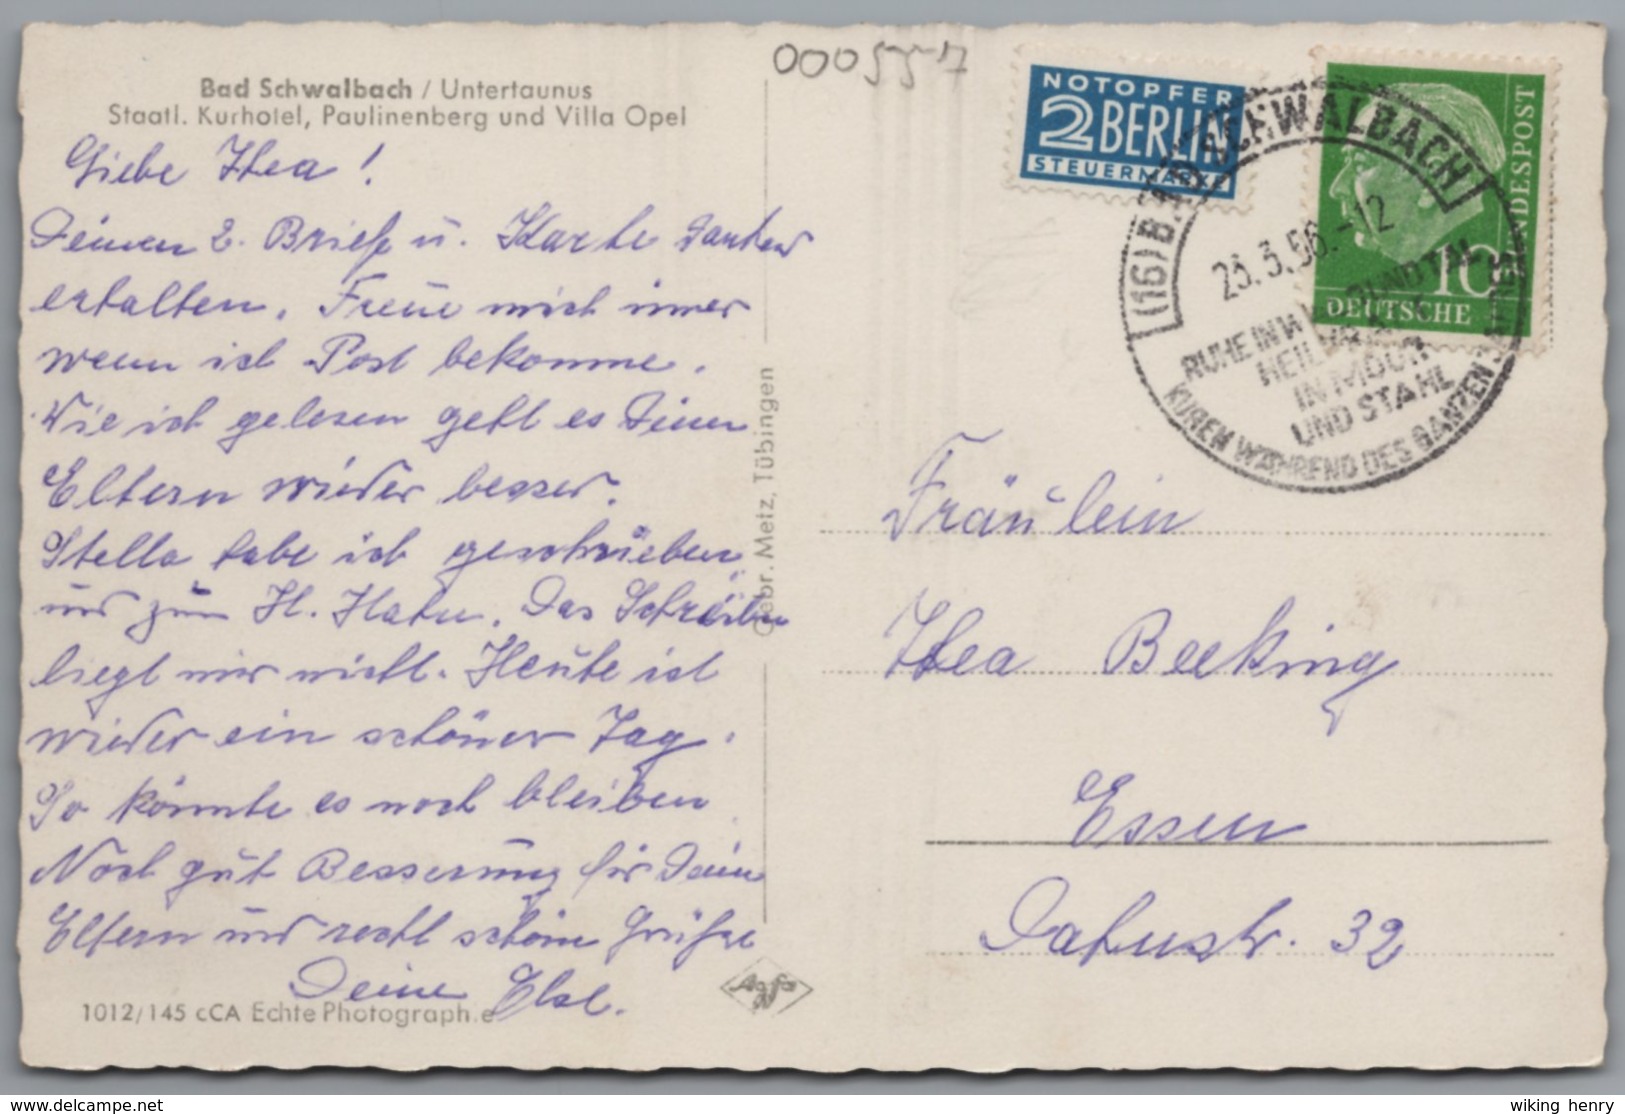 Bad Schwalbach / Untertaunus
Staatl. Kurhotel, Paulinenberg und Villa Opel
Liebe Thea!
Deinen 2. Brief u. Karte dankend
erhalten. Freue mich immer
wenn ich Post bekomme.
Wie ich gelesen geht es Deinen
Eltern wieder besser.
Stella habe ich geschrieben
und zum H. Hahn. Das Schreiben
liegt mir nicht. Heute ist
wieder ein schöner Tag.
So könnte es noch bleiben
Noch gut Besserung für Deine
Eltern und recht schöne Grüße
Deine Else.
1012/145 cCA Echte Photographie
Gebr. Metz, Tübingen
Agfa
0005517
NOTOPFER
2 BERLIN
STEUERMARKE
DEUTSCHE BUNDESPOST
10
(16) BAD SCHWALBACH
23.3.56.-12
RUHE IN WALD UND TAL
HEILUNG
IN MOOR
UND STAHL
KUREN WÄHREND DES GANZEN JAHRES
Fräulein
Thea Beeking
Essen
Dahnstr. 32
wiking henry
www.delcampe.net